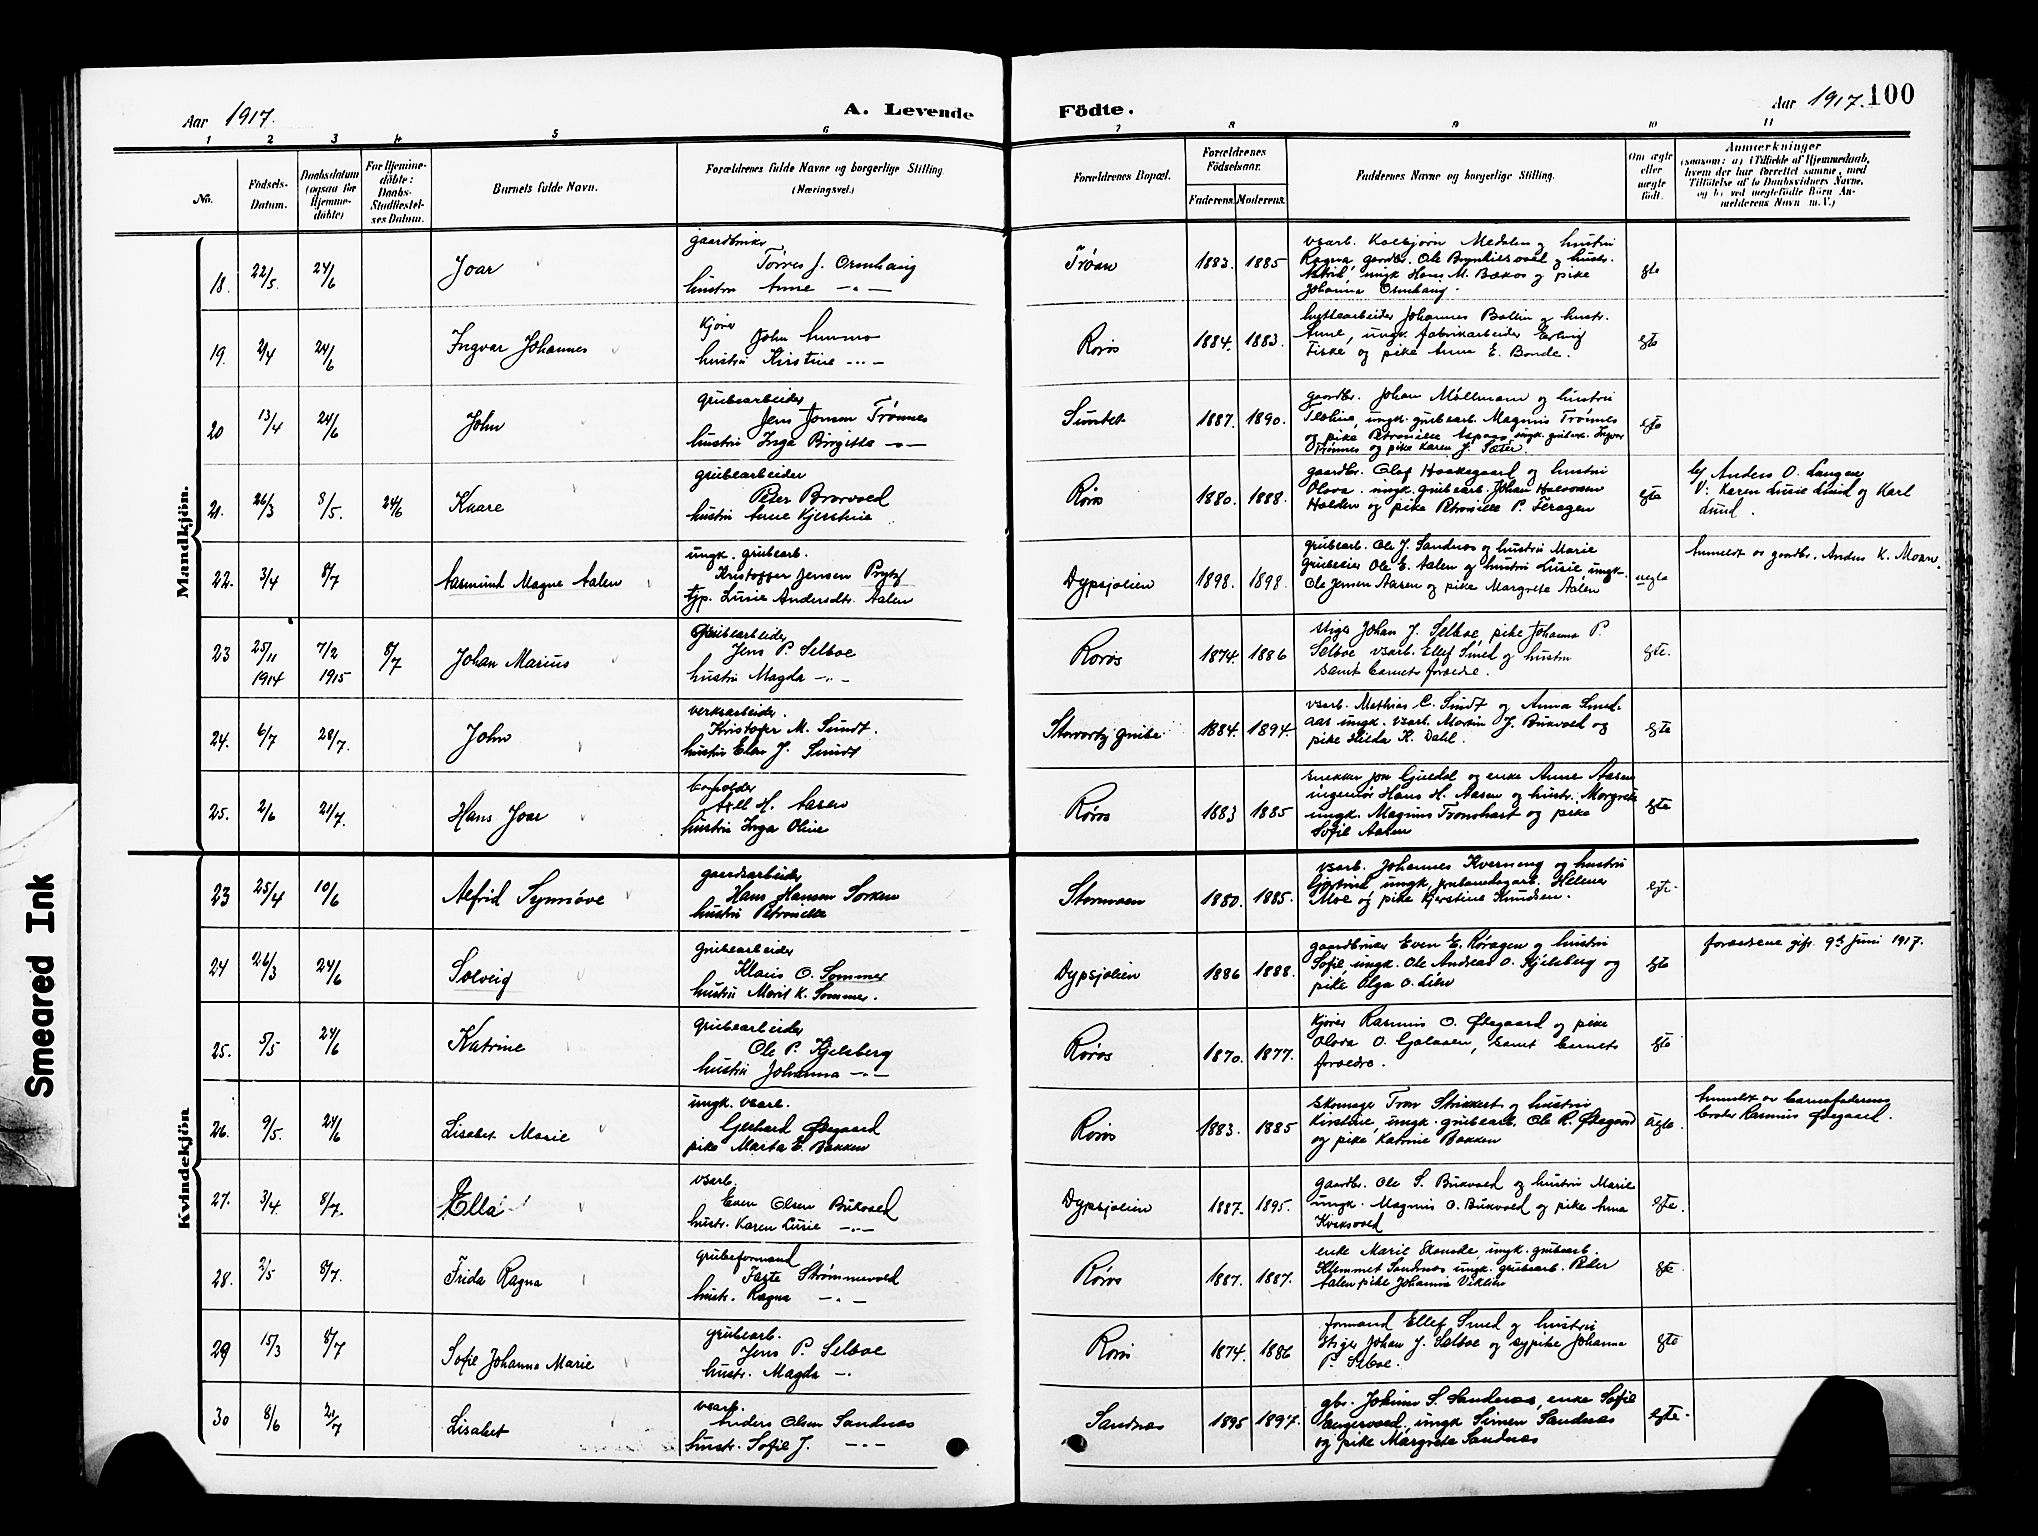 Aar 1917.
A. Levende
Födte.
Aar 1917. 100
1 2 3 4 5 6 7 8 9 10 11
No.
Födsels-
Datum.
Daabsdatum
(ogsaa för
Hjemme-
döbte)
For Hjemme-
döbte:
Daabs-
Stadfestel-
ses Datum.
Barnets fulde Navn.
Forældrenes fulde Navne og borgerlige Stilling
(Næringsvei.)
Forældrenes Bopæl.
Forældrenes
Födselsaar.
Faderens. Moderens.
Faddernes Navne og borgerlige Stilling.
Om ægte
eller
uægte
födt.
Anmærkninger
(saasom: a) i Tilfælde af Hjemmedaab,
hvem der har forrettet samme, med
Tilföielse af to Daabsvidners Navne,
og b) ved uægtefödte Börn An-
melderens Navn m. V.)
Mandkjön.
18. 22/5. 24/6 Joar
gaardbruker
Tørres J. Ormhaug
hustru Anne -"-
Trøan 1883. 1885
vsarb. Kolbjørn Medalen og hustru
Ragna, gaardbr. Ole Brynhildsvold og hustr.
Astrid, ungk. Hans M. Bækos og pike
Johanna Ormhaug.
egte
19. 2/4 24/6 Ingvar Johannes
kjører
John
hustru Kirstine -"-
Røros 1884. 1883.
hyttearbeider Johannes Bollin og hustr.
Anne, ungk. fabrikarbeider Erling
Fiske og pike Anna E. Bonde.
egte
20 13/4 24/6 John
grubearbeider
Jens Jensen Trønnes
hustru Inga Birgitte -"-
Sundet 1887. 1890.
gaardbr. Johan Møllmann og hustru
ungk. grubearb. Magnus Trønnes
og pike Petronille Aspaas, ungk. grubearb. Ingvar
Trønnes og pike Karen J. Sæter.
egte
21. 26/3 8/5. 24/6 Kaare
grubearbeider
Peter Borvold
hustru Anne Kjerstine
Røros 1880. 1888.
gaardbr. Olaf Haakegaard og hustru
Olova. ungk. grubearb. Johan Halvorsen
Holden og pike Petronille P. Feragen
egte
b/ Anders O. Langen
V: Karen Lusie Lund og Karl
Lund.
22. 3/4 8/7 Aasmund Magne Aalen
ungk. grubearb.
Kristoffer Jensen Prytz
tjp. Lusie Andersdtr. Aalen
Dypsjølien 1898. 1898.
grubearb. Ole J. Sandnes og hustru Marie
grubeeier Ole E. Aalen og hustru Lusie ungk.
Ole Jensen Aasen og pike Margrete Aalen
uegte
Anmeldt av gaardbr. Anders K. Moan.
23 25/11 1914 7/2 1915 8/7 Johan Marius
Grubearbeider
Jens P. Selboe
hustru Magda -"-
Røros 1874. 1886
stiger Johan J. Selboe, pike Johanna P.
Selboe vsarb. Ellef Smed og hustru
samt barnets foreldre.
egte.
24. 6/7 28/7. John
verksarbeider.
Kristofer M. Sundt.
hustru Elen J. Sundt
Storvartz grube 1884. 1894.
vsarb. Mathias C. Sundt og Anna Smed-
aas ungk. vsarb. Martin J. Bukvold og
pike Hilda K. Dahl.
egte
25. 2/6 21/7. Hans Joar
Axel H. Aasen
hustru Inga Oline
Røros 1883 1885
snekker Jon Gjeldal og enke Anne Aasen
ingeniør Hans H. Aasen og hustr. Margrete
ungk. Magnus Tronshart og pike
Sofie Aasen
egte
Kvindekjön
23 25/4 10/6 Alfrid Synnöve
gaardsarbeider
Hans Hansen Sorken
hustru Petronille
Stormoen 1880. 1885.
vsarb. Johannes Kverneng og hustru
Gjertrud, ungk. jernbanedagarb. Helmer
Moe og pike Kjerstine Knudsen.
egte.
24 26/3 24/6 Solveig
Grubearbeider
Klaus O. Sommer
hustru Marit K. Sommer.
Dypsjølien 1886 1888.
gaardbruker Even E. Røragen og hustru
Sofie, ungk. Ole Andreas O. Kjelsberg og
pike Olga O. Lien
egte
forældrene gift 9de juni 1917.
25. 5/5 24/6 Katrine
grubearbeider
Ole P. Kjelsberg
hustru Johanna -"-
Røros 1870. 1877.
Kjører Rasmus O. Ødegaard og pike
Olova O. Galaaen, samt barnets
foreldre.
egte
26. 9/5. 24/6 Lisabet Marie
ungk. vsarb.
Gerhard Ødegaard
pike Marta E. Bakken
Røros 1883. 1885
skomager Tron Strikkert og hustru
Kirstine, ungk. grubearb. Ole R. Ødegaard
og pike Katrine Bakken
uegte.
Anmeldt av barnefaderens
broder Rasmus Ødegaard.
27. 3/4. 8/7. Ella
vsarb.
Even Olsen Bukvold
hustr. Karen Lusie -"-
Dypsjølien 1887. 1895.
gaardbr. Ole S. Bukvold og hustru Marie
ungk. Magnus O. Bukvold og pike Anna
Kveksvold
egte.
28. 2/5 8/7. Frida Ragna
grubeformand
Faste Strømmevold
hustr. Ragna -"-
Røros 1887. 1887.
enke Marie Skanske, ungk. grubearb.
Klemmet Sandnes ungk. grubearb. Peter
Aalen pike Johanna Viklin
egte
29 15/3 8/7 Sofie Johanna Marie
grubearb.
Jens P. Selboe
hustr. Magda -"-
Røros 1874. 1886
formand Ellef Smed og hustru
stiger Johan J. Selboe og sypike Johanna
P. Selboe.
egte
30 8/6 21/7 Lisabet
vsarb.
Anders Olsen Sandnæs
hustr. Sofie J. -"-
Sandnæs 1895 1897.
gbr. Johan S. Sandnæs, enke Sofie
Engesvold, ungk. Simen Sandnæs
og pike Margrete Sandnæs
egte.
Smeared Ink